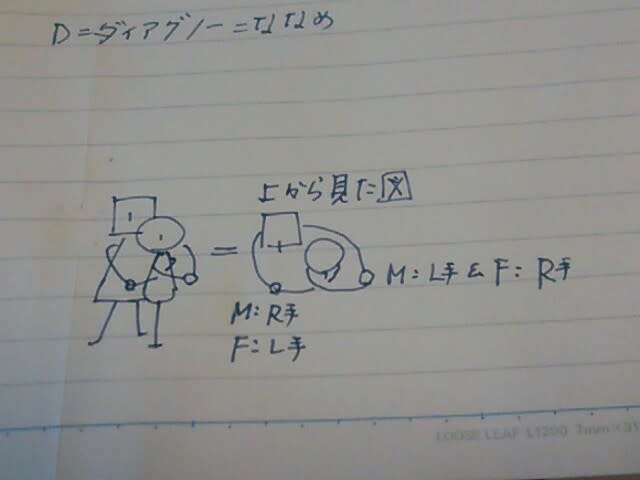 D=ダィアグノー=ななめ
上から見た図
M:L手&F:R手
M:R手
F:L手
LOOSE LEAF L1200 7mm×31